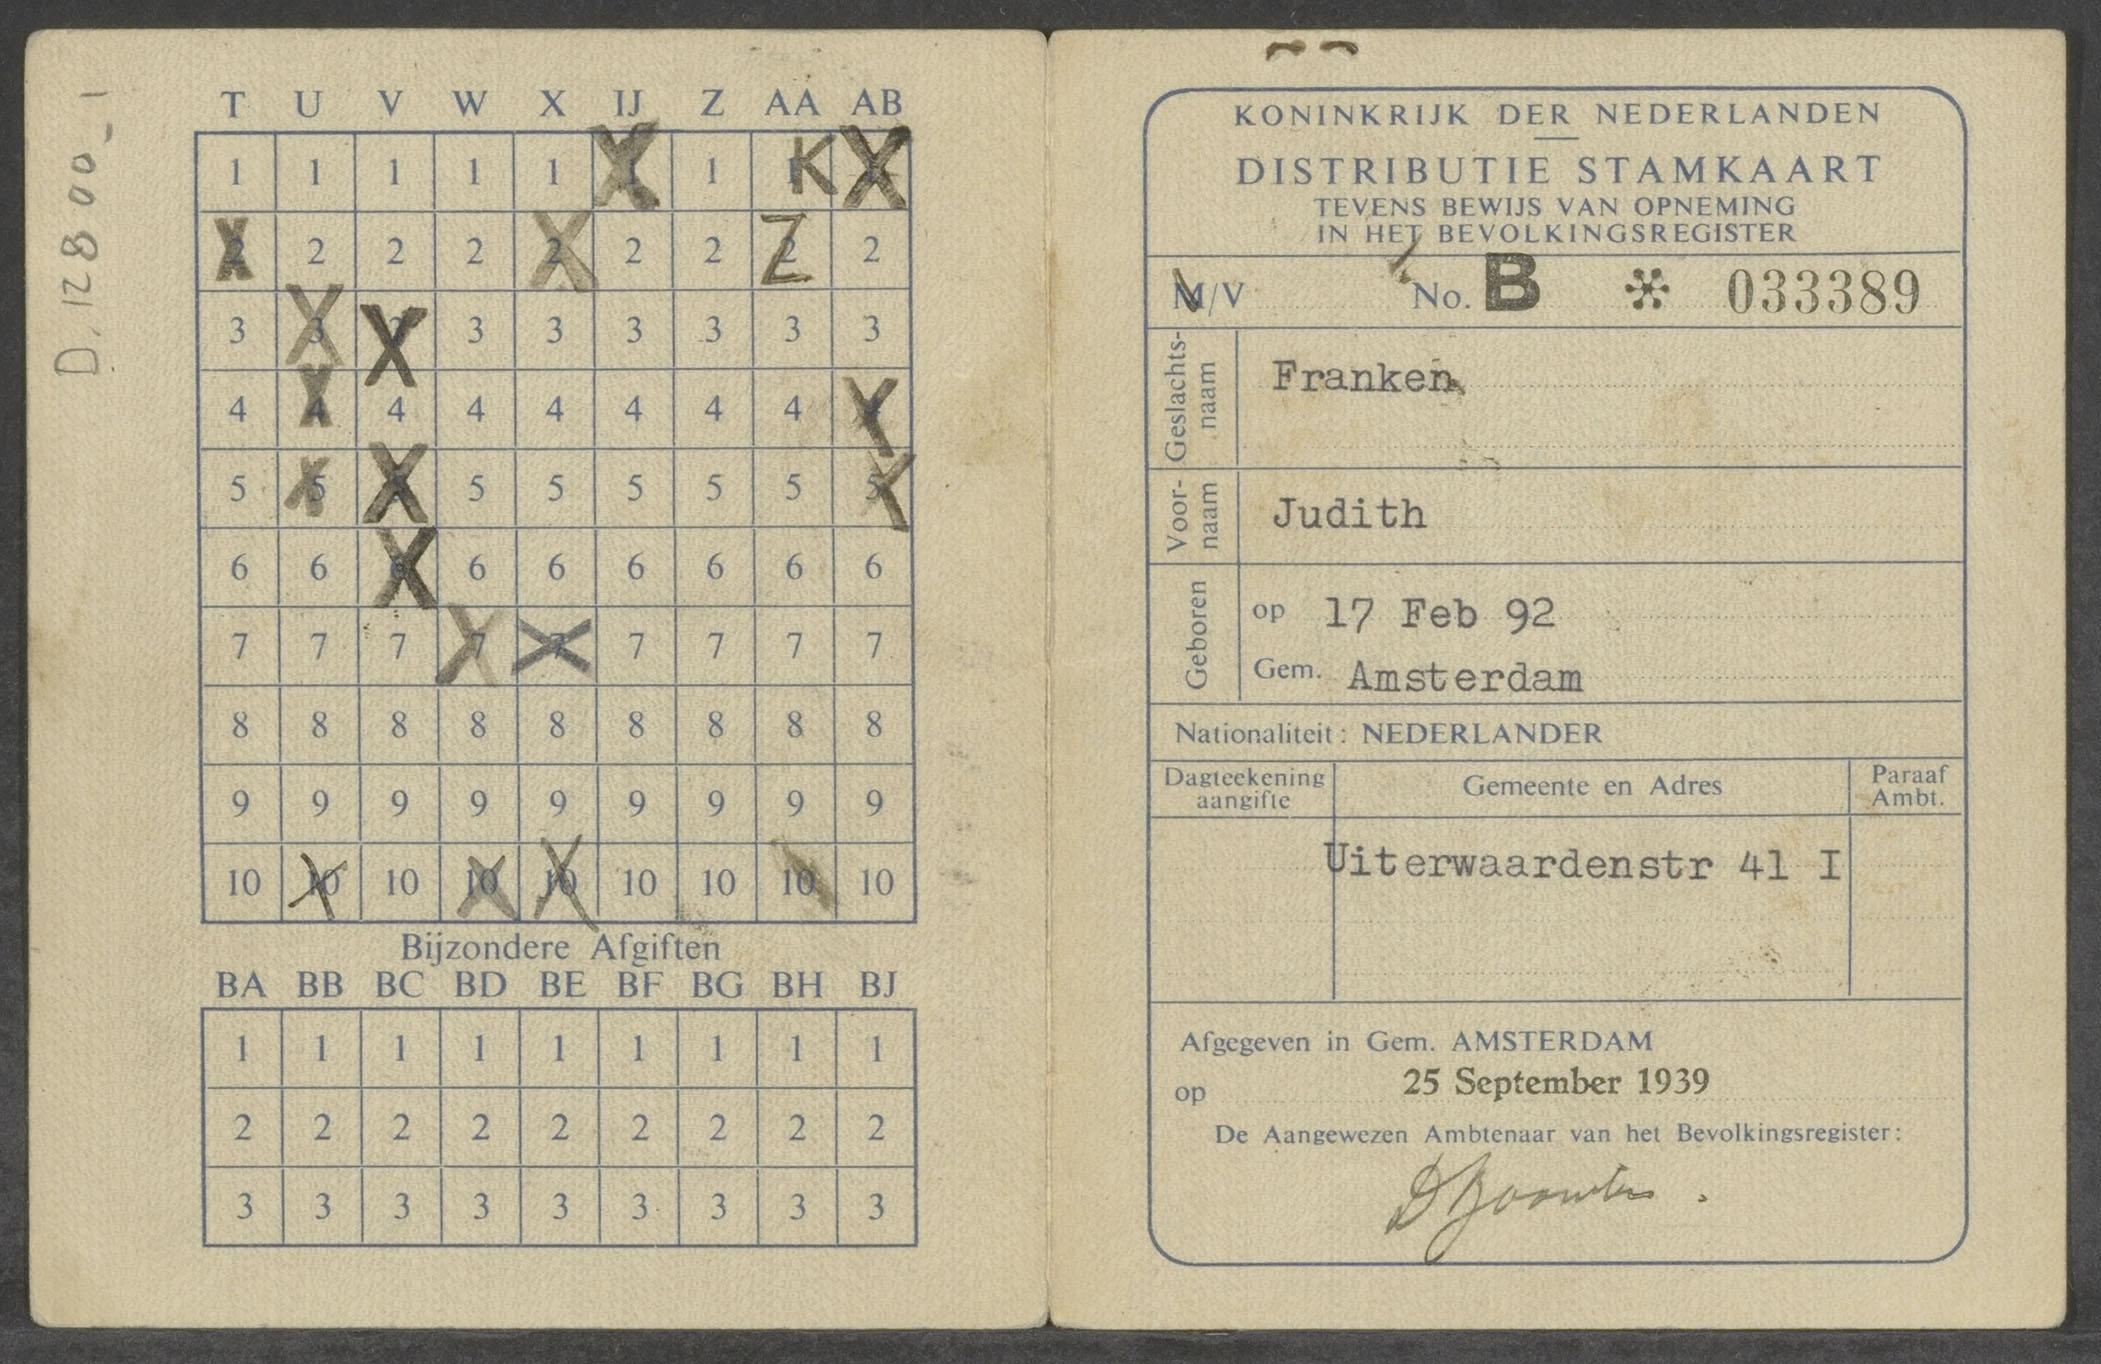 D. 12800_1
T U V W X IJ Z AA AB
1 1 1 1 1 X 1 K X
X 2 2 2 X 2 2 Z 2
3 X X 3 3 3 3 3 3
4 X 4 4 4 4 4 4 X
5 X X 5 5 5 5 5 X
6 6 X 6 6 6 6 6 6
7 7 7 X X 7 7 7 7
8 8 8 8 8 8 8 8 8
9 9 9 9 9 9 9 9 9
10 X 10 X X 10 10 10 10
Bijzondere Afgiften
BA BB BC BD BE BF BG BH BJ
1 1 1 1 1 1 1 1 1
2 2 2 2 2 2 2 2 2
3 3 3 3 3 3 3 3 3
KONINKRIJK DER NEDERLANDEN
DISTRIBUTIE STAMKAART
TEVENS BEWIJS VAN OPNEMING
IN HET BEVOLKINGSREGISTER
M/V No. B * 033389
Geslachts-
naam
Franken
Voor-
naam
Judith
Geboren
op 17 Feb 92
Gem. Amsterdam
Nationaliteit: NEDERLANDER
Dagteekening
aangifte
Gemeente en Adres
Paraaf
Ambt.
Uiterwaardenstr 41 I
Afgegeven in Gem. AMSTERDAM
op 25 September 1939
De Aangewezen Ambtenaar van het Bevolkingsregister: